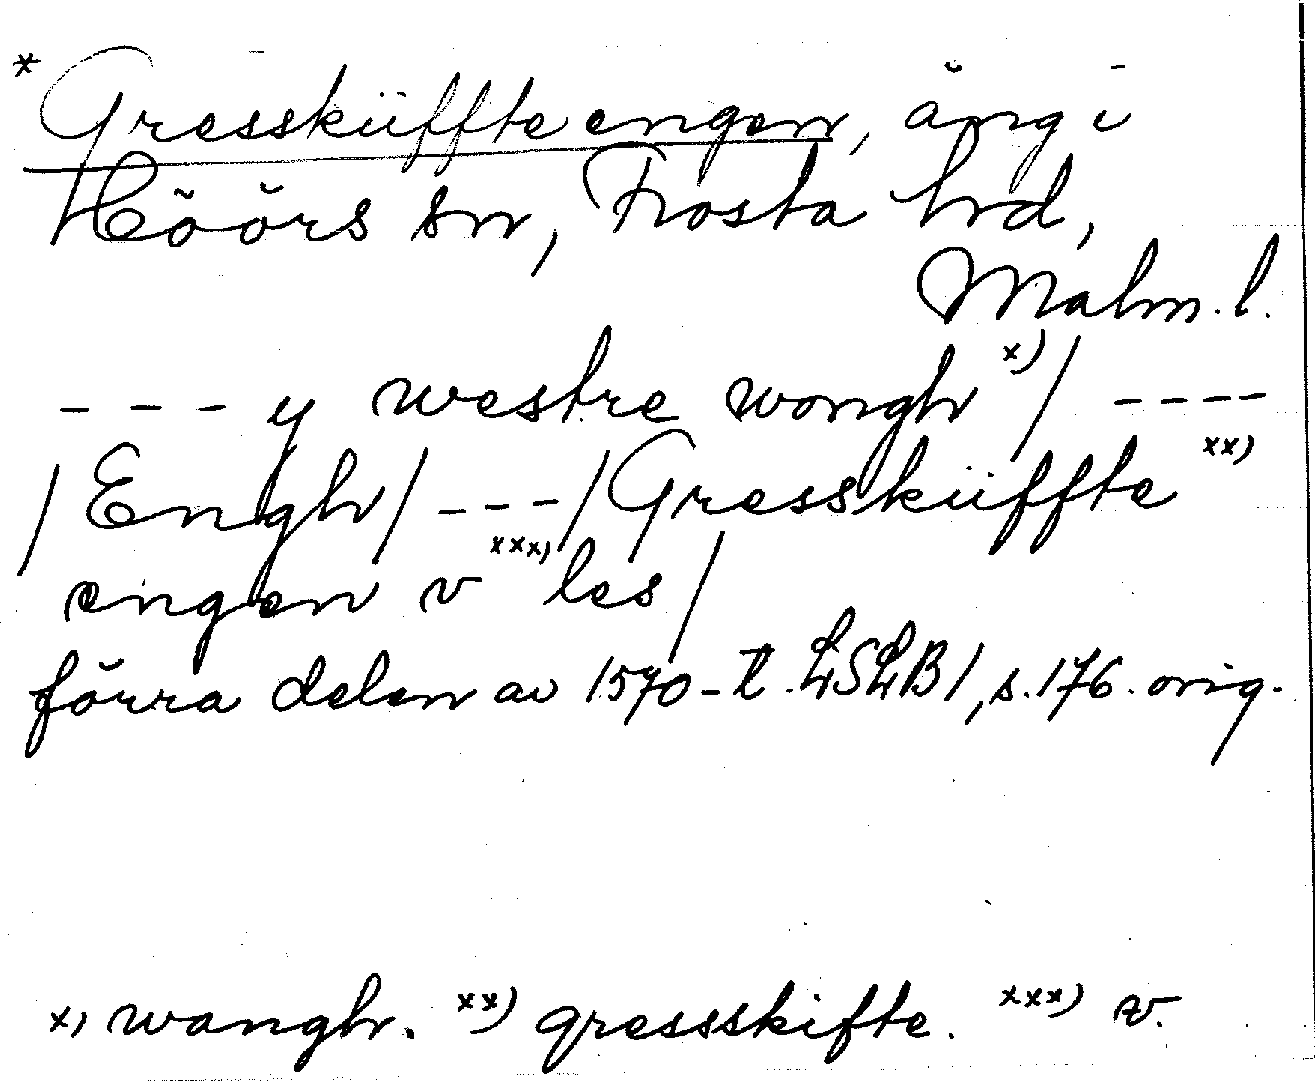 * Gresskiiffte engen, äng i
Höörs sn, Frosta hrd,
Malm. l.
- - - y westre wongh x) / - - - -
/ Engh / - - - / Gresskiiffte xx)
engen v xxx) les /
förra delen av 1570-t. LSLB 1, s. 176. orig.
x) wangh. xx) gressskifte. xxx) v.